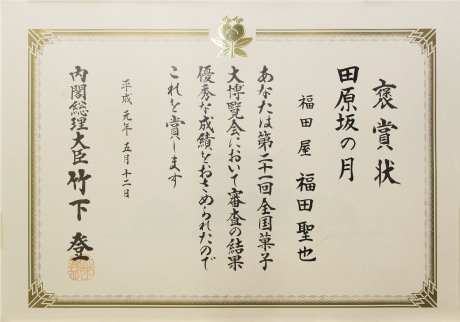 褒賞状
田原坂の月
福田屋 福田聖也
あなたは第二十一回全国菓子
大博覧会において審査の結果
優秀な成績をおさめられたので
これを賞します
平成元年五月十二日
内閣総理大臣 竹下登